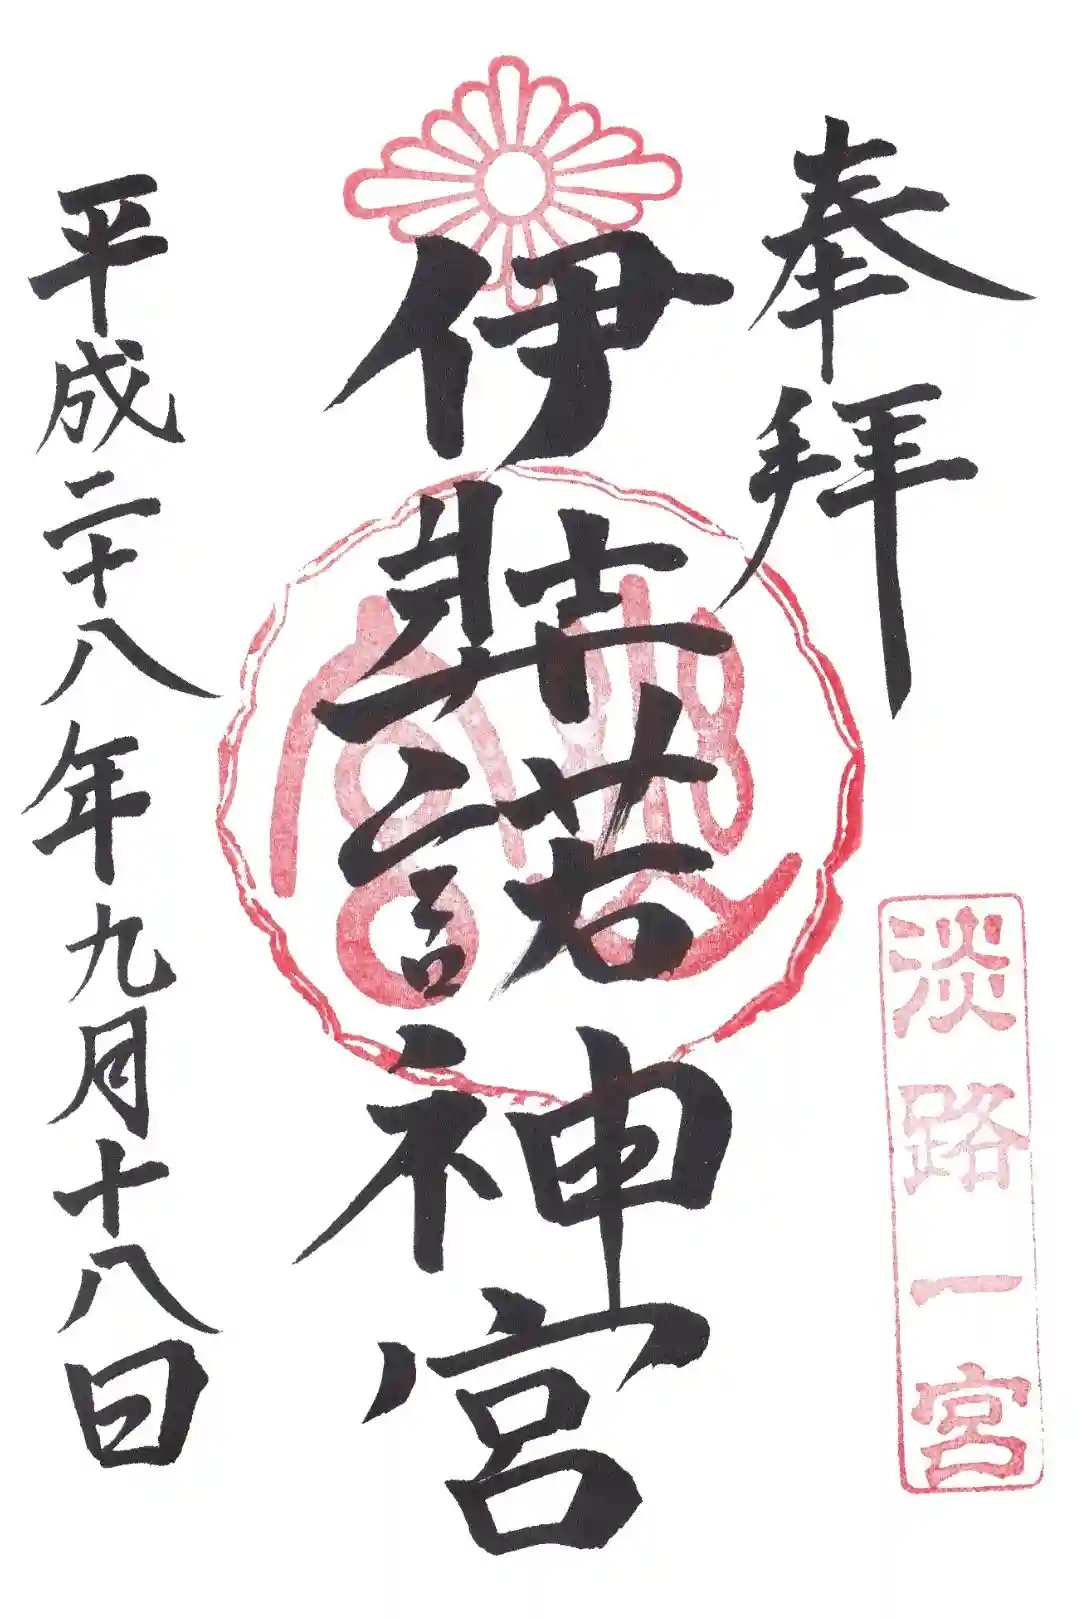 奉拝
淡路一宮
伊弉諾神宮
幽宮
平成二十八年九月十八日